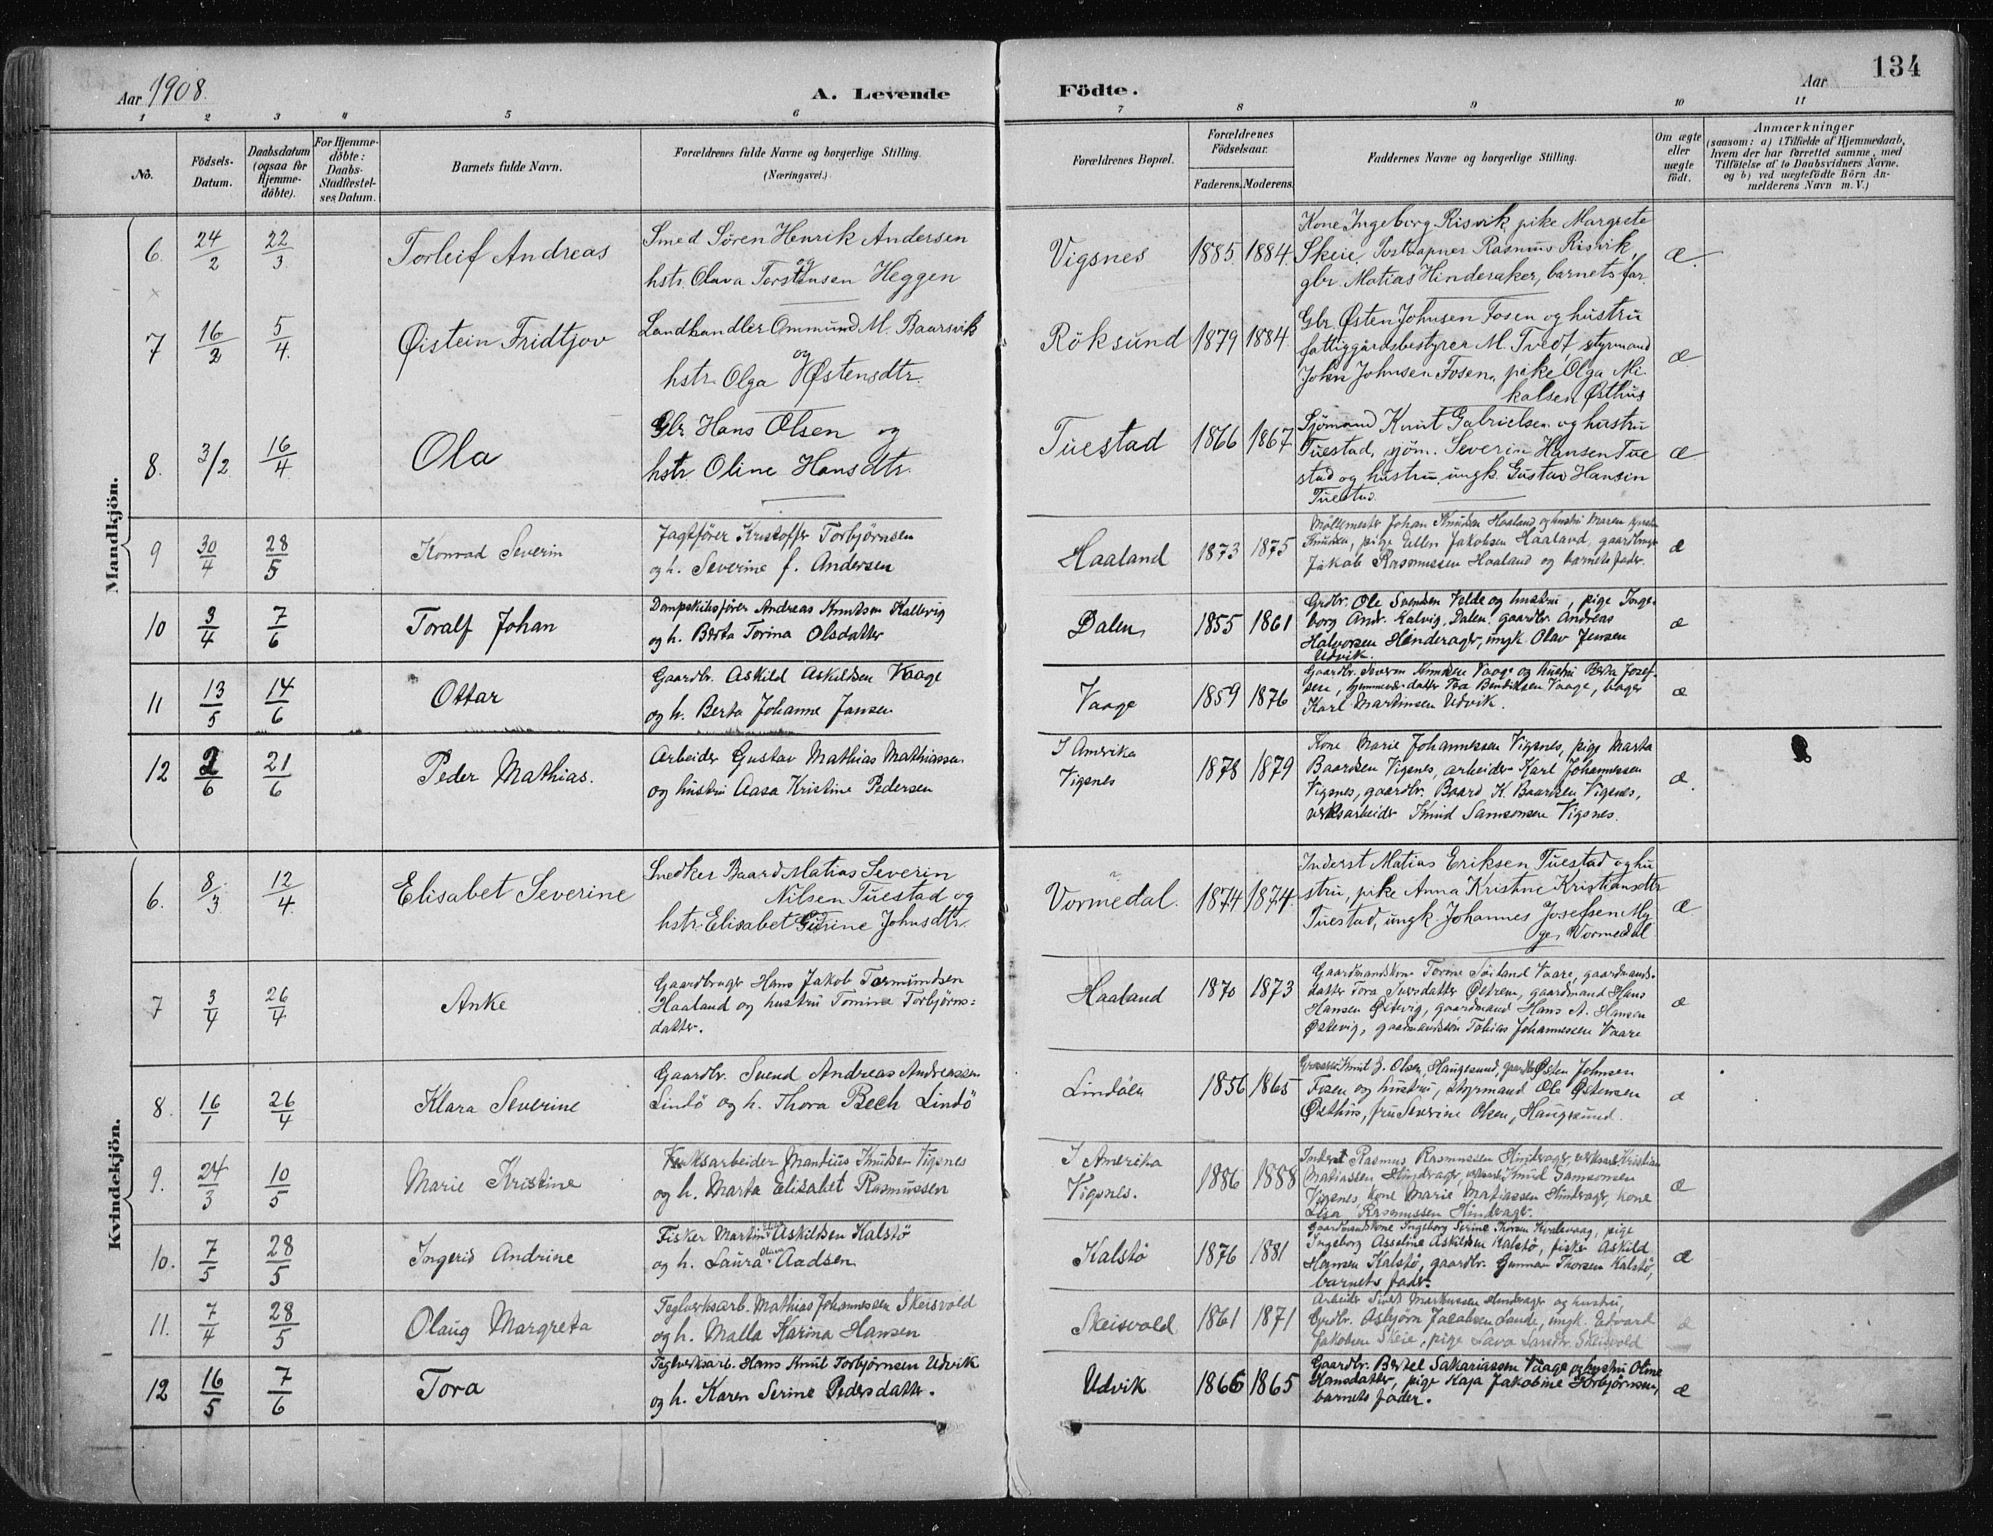 134
Aar 1908.
A. Levende Födte.
Aar
1 2 3 4 5 6 7 8 9 10 11
No.
Födsels-Datum.
Daabsdatum (ogsaa for Hjemme-döbte).
For Hjemme-döbte: Daabs-Stadfæstel-ses Datum.
Barnets fulde Navn.
Forældrenes fulde Navne og borgerlige Stilling.
(Næringsvei.)
Forældrenes Bopæl.
Forældrenes Födselsaar.
Faderens. Moderens.
Faddernes Navne og borgerlige Stilling.
Om ægte eller uægte födt.
Anmærkninger
(saasom: a) i Tilfælde af Hjemmedaab,
hvem der har forrettet samme, med
Tilföielse af to Daabsvidners Navne,
og b) ved uægtefödte Börn An-
melderens Navn m. V.)
Mandkjön.
6. 24/2 22/3 Torleif Andreas
Smed Sören Henrik Andersen
og
hstr. Olava Torstensen Heggen
Vigsnes 1885 1884
Kone Ingeborg Risvik, pike Margrete
Skeie, Postaapner Rasmus Risvik,
gbr. Matias Hinderaker, barnets far.
æ.
7 16/2 5/4 Øistein Fridtjov
Landhandler Ommund M. Baarsvik
og
hstr. Olga Østensdtr.
Röksund 1879 1884
Gbr. Østen Johnsen Fosen og hustru
fattiggårdsbestyrer M. Tvedt, styrmand
John Johnsen Fosen, pike Olga Mi-
kalsen Østhus
æ
8. 3/2 16/4 Ola
Gbr Hans Olsen og
hstr. Oline Hansdtr.
Tuestad 1866 1867
Sjömand Knut Gabrielsen og hustru
Tuestad, sjöm. Severin Hansen Tue
stad og hustru, ungk. Gustav Hansen
Tuestad.
æ
9 30/4 28/5 Konrad Severin
Jagtförer Kristoffer Torbjørnsen
og h. Severine f. Andersen
Haaland 1873 1875
Möllemester Johan Knudsen Haaland og hustru Maren
Knudsen, pige Ellen Jakobsen Haaland, gaardbruger
Jakob Rasmussen Haaland og barnets fader.
æ
10 3/4 7/6 Toralf Johan
Dampskibsfører Andreas Knudsen Kallevig
og h. Berta Torina Olsdatter
Dalen 1855 1861
Grdbr. Ole Svendsen Velde og hustru, pige Inge-
borg Andr. Kalvig, Dalen, gaardbr. Andreas
Halvorsen Hinderager, ungk Olav Jensen
Udvik.
æ
11 13/5 14/6 Ottar
Gaardbr. Askild Askildsen Vaage
og h. Berta Johanne Jansen
Vaage 1859 1876
Gaardbr. Severin Knudsen Vaage og hustru Berta Josef-
sen, hjemmev. datter Tea Bendiksen Vaage, bager
Karl Martinsen Udvik.
æ
12 2/6 21/6 Peder Mathias.
Arbeider Gustav Mathias Mathiassen
og hustru Aasa Kristine Pedersen
I Amerika
Vigsnes 1878 1879
Kone Marie Johannessen Vigsnes, pige Marta
Baardsen Vigsnes, arbeider Karl Johannessen
Vigsnes, gaardbr. Baard K. Baardsen Vigsnes,
verksarbeider Knud Samsonsen Vigsnes.
æ.
Kvindekjön.
6. 8/3 12/4 Elisabet Severine
Snedker Baard Matias Severin
Nilsen Tuestad og
hstr. Elisabet Gurine Johnsdtr.
Vormedal. 1874 1874.
Inderst Matias Eriksen Tuestad og hu
stru, pike Anna Kristine Kristiansdtr
Tuestad, ungk. Johannes Josefsen My
ge, Vormedal
æ
7 3/4 26/4 Anke
Gaardbruger Hans Jakob Tormundsen
Haaland og hustru Tomine Torbjørns=
datter.
Haaland 1870 1873
Gaardmandskone Torine Söiland Vaare, gaardmands-
datter Tora Iversdatter Østrem, gaardmand Hans
Hansen Østevig, gaardmand Hans A. Hansen
Østevig, gaardmandssön Tobias Johannessen Vaare
æ
8. 16/1 26/4 Klara Severine
Gaardbr. Svend Andreas Andreassen
Lindö og h. Thora Bech Lindö
Lindöen 1856 1865
Knut J. Olsen, Haugesund, gaardbr Østen Johnsen
Fosen og hustru, styrmand Ole Østensen
Østhus, fru Severine Olsen, Haugesund.
æ
9. 24/3 10/5 Marie Kristine
Verksarbeider Mantius Knudsen Vigsnes
og h. Marta Elisabet Rasmussen
I Amerika
Vigsnes. 1886 1888
Inderst Rasmus Rasmussen Hinderager, verksarb Kristian
Matiassen Hinderager, verksarb Knud Samsonsen
Vigsnes, kone Marie Matiassen Hinderager, kone
Lisa Rasmussen Hinderager.
æ
10. 7/5 28/5 Ingerid Andrine
Fisker Martin Askildsen Kalstö
og h. Laura Olava Aadsen
Kalstö 1876 1881
Gaardmandskone Ingeborg Serine Thorsen Kvalevaag, pige
Ingeborg Asseline Askildsen Kalstö, fisker Askild
Kalstö, gaardbr. Gunnar Thorsen Kalstö,
barnets fader.
æ
11. 7/4 28/5 Olaug Margreta
Teglverksarb. Mathias Johannessen Skeisvold
og h. Malla Karina Hansen
Skeisvold 1861 1871
Arbeider Sivert Markussen Hinderager og hustru,
Grdbr. Asbjørn Jacobsen Lande, ungk. Edvard
Jakobsen Skeie, pige Lava Larsdtr. Skeisvold
æ
12 16/5 7/6 Tora
Teglverksarb. Hans Knut Torbjørnsen Udvik
og h. Karen Serine Pedersdatter.
Udvik 1866 1865
Gaardbr. Bertel Sakariassen Vaage og hustru Oline
Hansdatter, pige Kaja Jakobine Torbjørnsen,
barnets fader.
æ